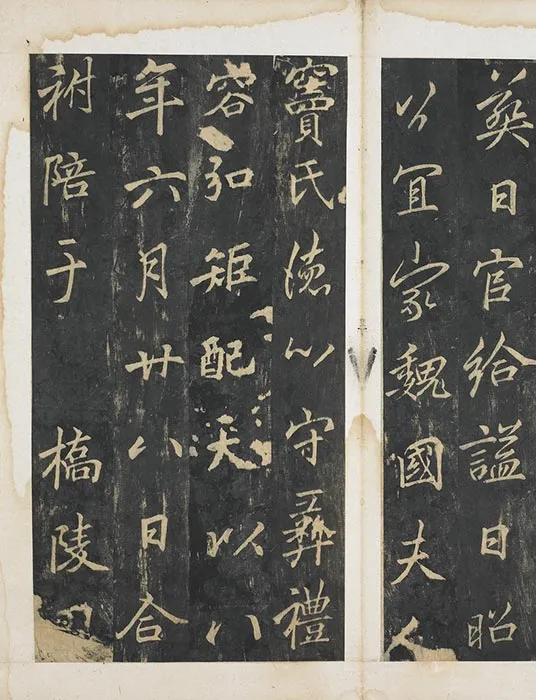 葬日官給謚曰昭
公宜家魏國夫人
竇氏德以守彝禮
容弘矩配天以八
年六月廿八日合
祔陪于 橋陵